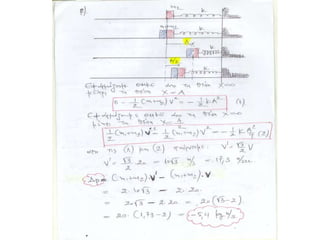 β)
m₂
k
k
A
k
A/2
k
Εφαρμόζουμε ΘΜΚΕ από τη θέση x=0
μέχρι τη θέση x=A
0 - 1/2 (m₁+m₂) V² = - 1/2 k A² (1)
Εφαρμόζουμε ΘΜΚΕ από τη θέση x=0
μέχρι τη θέση x=A/2
1/2 (m₁+m₂) V'² - 1/2 (m₁+m₂) V² = - 1/2 k A²/4 (2)
από τις (1) και (2) παίρνουμε V' = √3/2 V
V' = √3/2 · 20 = 10√3 m/s = 17,3 m/sec
Δp = (m₁+m₂)·V' - (m₁+m₂)·V
= 2·10√3 - 2·20
= 20√3 - 2·20 = 20(√3-2)
= 20·(1,73-2) = -5,4 kg m/s